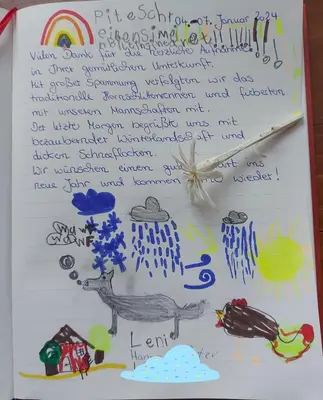 04.-07. Januar 2024
Vielen Dank für die herzliche Aufnahme
in Ihrer gemütlichen Unterkunft.
Mit großer Spannung verfolgten wir das
traditionelle Hornschlittenrennen und fieberten
mit unseren Mannschaften mit.
Der letzte Morgen begrüßte uns mit
bezaubernder Winterlandschaft und
dicken Schneeflocken.
Wir wünschen einen guten Start ins
neue Jahr und kommen wieder!
WaWF
WaWF
Leni